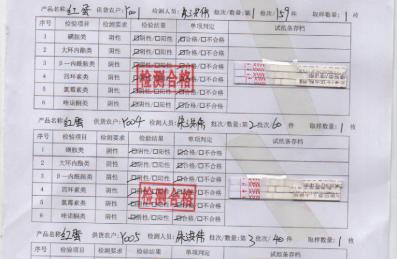 产品名称:红蛋 供货农户:Y001 检测人员: 批次/数量:第1批次/159件 取样数量:1枚
序号 检验项目 检测要求 检验结果 单项判定 试纸条存档
1 磺胺类 阴性 ☑阴性/☐阳性 ☑合格/☐不合格
2 大环内酯类 阴性 ☑阴性/☐阳性 ☑合格/☐不合格
3 β-内酰胺类 阴性 ☑阴性/☐阳性 ☑合格/☐不合格
4 四环素类 阴性 ☑阴性/☐阳性 ☑合格/☐不合格
5 氯霉素类 阴性 ☑阴性/☐阳性 ☑合格/☐不合格
6 喹诺酮类 阴性 ☑阴性/☐阳性 ☑合格/☐不合格
检测合格
产品名称:红蛋 供货农户:Y004 检测人员: 批次/数量:第2批次/60件 取样数量:1枚
序号 检验项目 检测要求 检验结果 单项判定 试纸条存档
1 磺胺类 阴性 ☑阴性/☐阳性 ☑合格/☐不合格
2 大环内酯类 阴性 ☑阴性/☐阳性 ☑合格/☐不合格
3 β-内酰胺类 阴性 ☑阴性/☐阳性 ☑合格/☐不合格
4 四环素类 阴性 ☑阴性/☐阳性 ☑合格/☐不合格
5 氯霉素类 阴性 ☑阴性/☐阳性 ☑合格/☐不合格
6 喹诺酮类 阴性 ☑阴性/☐阳性 ☑合格/☐不合格
检测合格
产品名称:红蛋 供货农户:Y005 检测人员: 批次/数量:第3批次/40件 取样数量:1枚
序号 检验项目 检测要求 检验结果 单项判定 试纸条存档